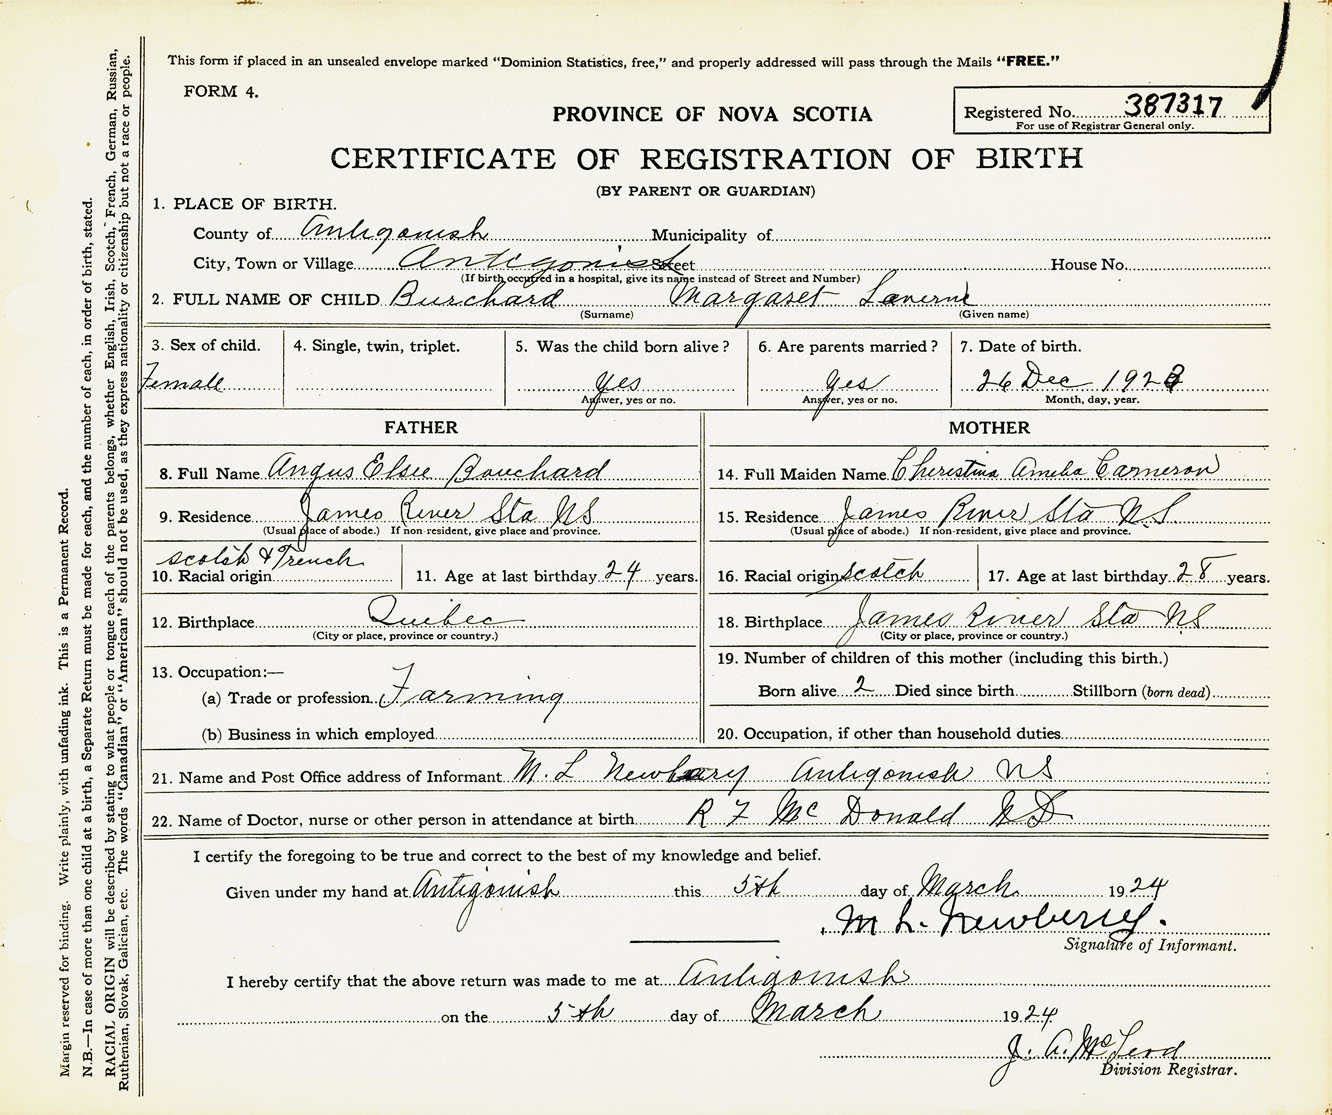 This form if placed in an unsealed envelope marked "Dominion Statistics, free," and properly addressed will pass through the Mails "FREE."
FORM 4.
PROVINCE OF NOVA SCOTIA
Registered No. 387317
For use of Registrar General only.
CERTIFICATE OF REGISTRATION OF BIRTH
(BY PARENT OR GUARDIAN)
1. PLACE OF BIRTH.
County of Antigonish Municipality of
City, Town or Village Antigonish Street House No.
(If birth occurred in a hospital, give its name instead of Street and Number)
2. FULL NAME OF CHILD Burchard Margaret Laverne
(Surname) (Given name)
3. Sex of child. 4. Single, twin, triplet. 5. Was the child born alive? 6. Are parents married? 7. Date of birth.
Female Yes Yes 26 Dec 1923
Answer, yes or no. Answer, yes or no. Month, day, year.
FATHER MOTHER
8. Full Name Angus Elsee Bouchard 14. Full Maiden Name Cherestina Amelia Cameron
9. Residence James River Sta NS 15. Residence James River Sta NS
(Usual place of abode.) If non-resident, give place and province. (Usual place of abode.) If non-resident, give place and province.
10. Racial origin scotsh & French 11. Age at last birthday 24 years. 16. Racial origin scotch 17. Age at last birthday 28 years.
12. Birthplace Quibec 18. Birthplace James River Sta NS
(City or place, province or country.) (City or place, province or country.)
13. Occupation:— 19. Number of children of this mother (including this birth.)
(a) Trade or profession Farming Born alive 2 Died since birth Stillborn (born dead)
(b) Business in which employed 20. Occupation, if other than household duties
21. Name and Post Office address of Informant M. L Newbery Antigonish NS
22. Name of Doctor, nurse or other person in attendance at birth R F McDonald MD
I certify the foregoing to be true and correct to the best of my knowledge and belief.
Given under my hand at Antigonish this 5th day of March 1924
M L. Newberry.
Signature of Informant.
I hereby certify that the above return was made to me at Antigonish
on the 5th day of March 1924
J. A. McLeod
Division Registrar.
Margin reserved for binding. Write plainly, with unfading ink. This is a Permanent Record.
N.B.—In case of more than one child at a birth, a Separate Return must be made for each, and the number of each, in order of birth, stated.
RACIAL ORIGIN will be described by stating to what people or tongue each of the parents belongs, whether English, Irish, Scotch, French, German, Russian,
Ruthenian, Slovak, Galician, etc. The words "Canadian" or "American" should not be used, as they express nationality or citizenship but not a race or people.